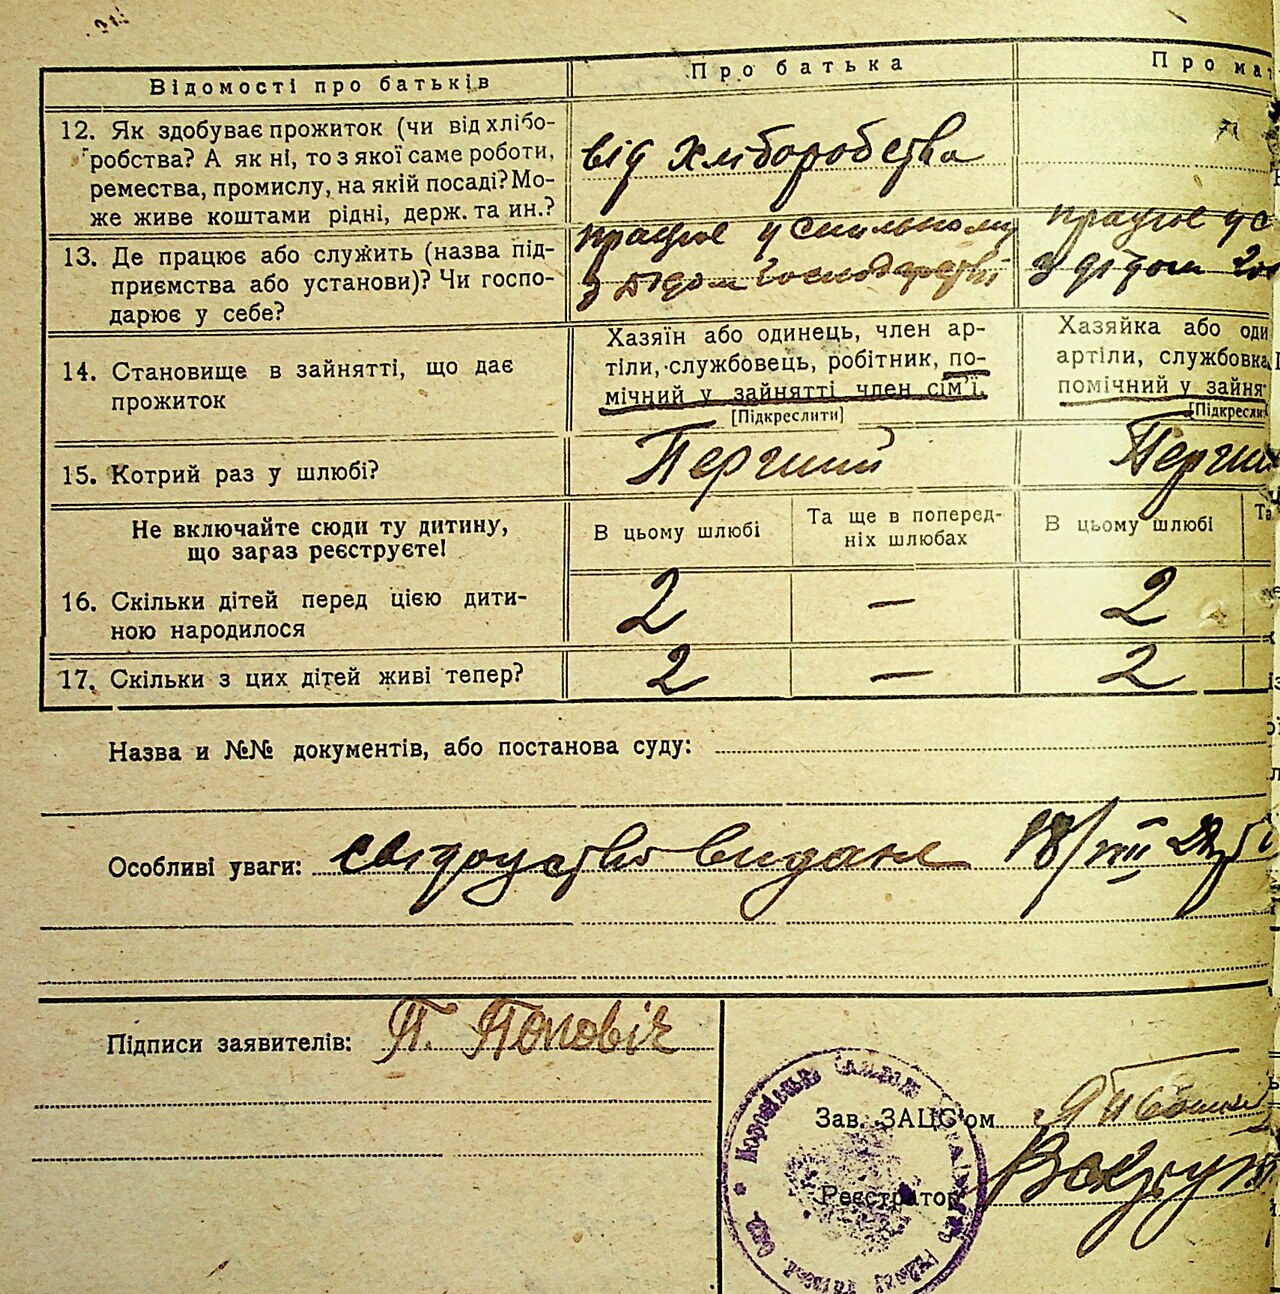 Відомості про батьків
Про батька
Про ма
12. Як здобуває прожиток (чи від хлібо-
робства? А як ні, то з якої саме роботи,
ремества, промислу, на якій посаді? Мо-
же живе коштами рідні, держ. та ин.?
від хліборобства
13. Де працює або служить (назва під-
приємства або установи)? Чи госпо-
дарює у себе?
працює у спильному
з дідом господарстві
працює у с
з дідом гос
14. Становище в зайнятті, що дає
прожиток
Хазяїн або одинець, член ар-
тіли, службовець, робітник, по-
мічний у зайнятті член сім'ї.
[Підкреслити]
Хазяйка або оди
артіли, службовка,
помічний у зайня
[Підкресли
15. Котрий раз у шлюбі?
Перший
Перши
Не включайте сюди ту дитину,
що зараз реєструєте!
В цьому шлюбі
Та ще в поперед-
ніх шлюбах
В цьому шлюбі
Та
16. Скільки дітей перед цією дити-
ною народилося
2 — 2
17. Скільки з цих дітей живі тепер?
2 — 2
Назва и №№ документів, або постанова суду:
Особливі уваги: свідоцтво видане 18/VIII 28
Підписи заявителів: П. Попович
Зав. ЗАЦС'ом
Реєстратор